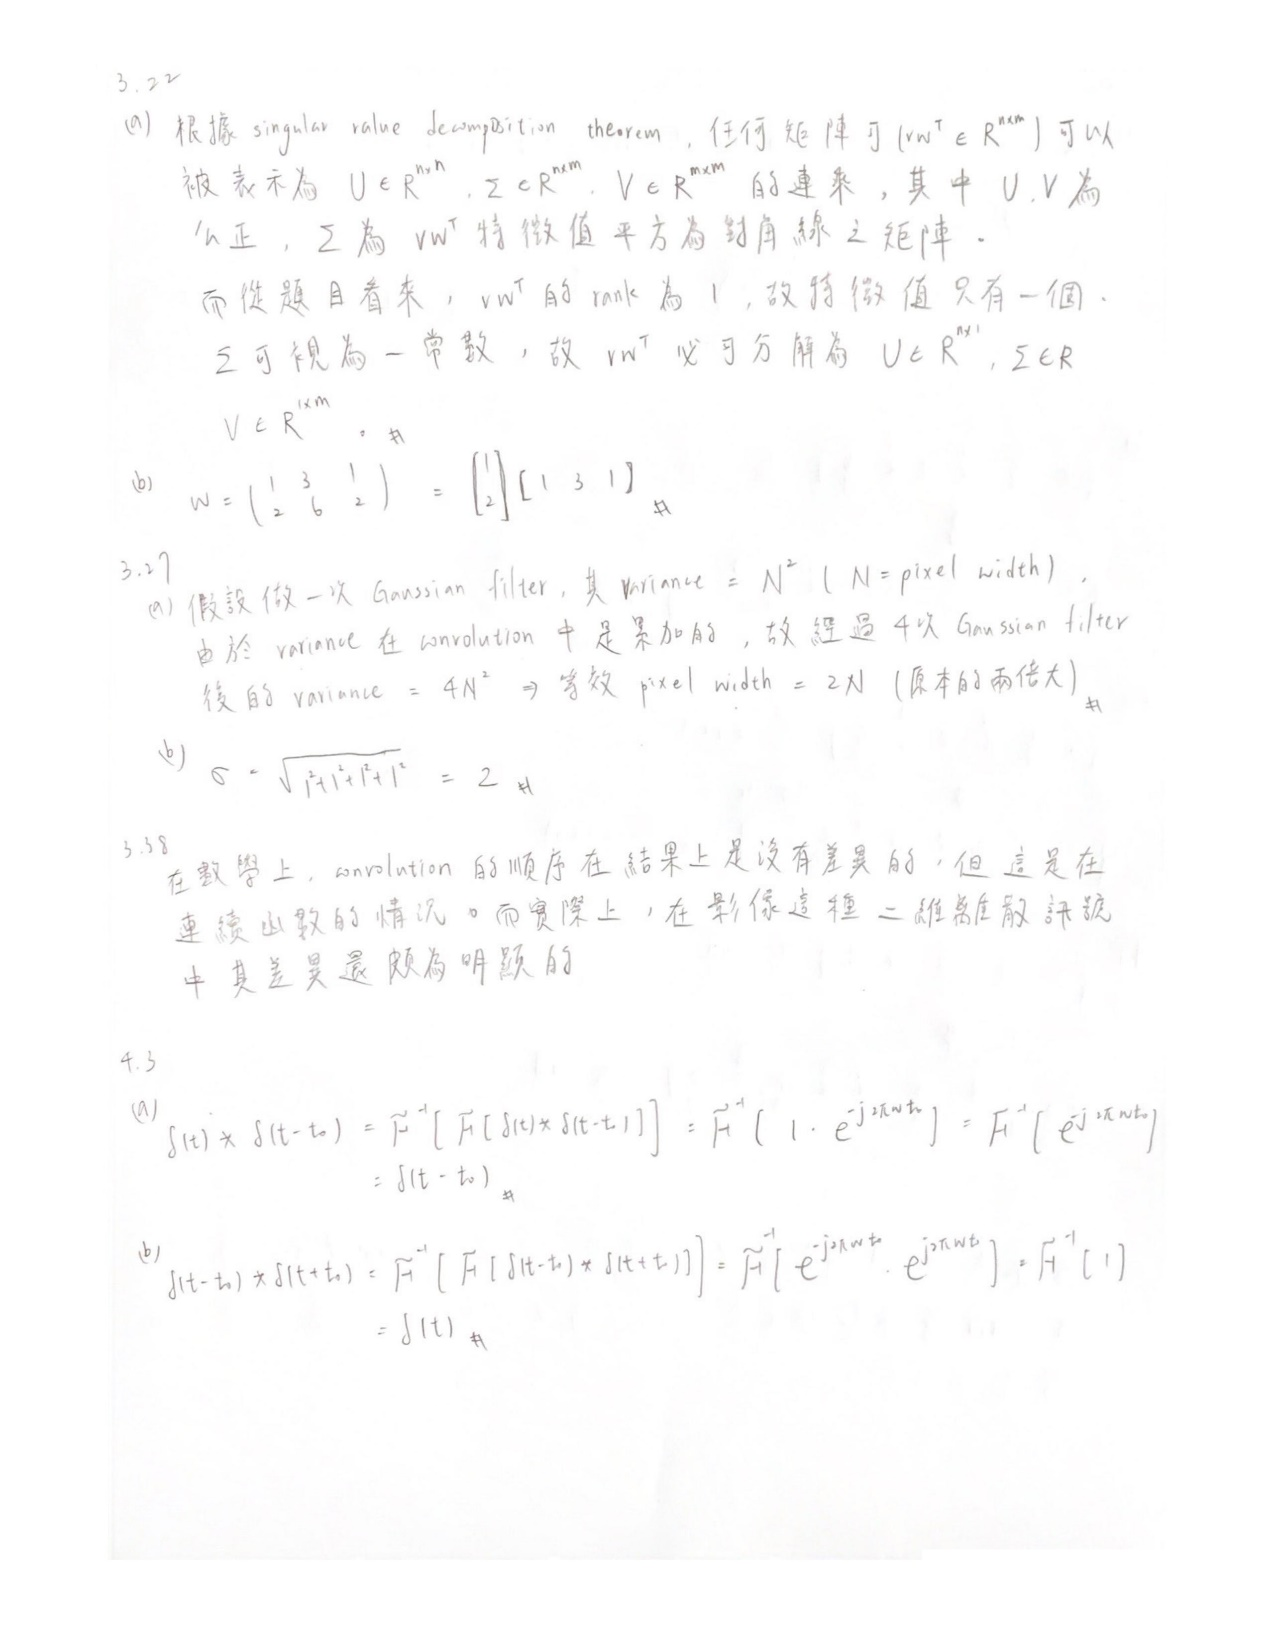 3.22
(a) 根據 singular value decomposition theorem, 任何矩陣可 (vwᵀ ∈ Rⁿˣᵐ) 可以
被表示為 U ∈ Rⁿˣⁿ, Σ ∈ Rⁿˣᵐ, V ∈ Rᵐˣᵐ 的連乘, 其中 U, V 為
么正, Σ 為 vwᵀ 特徵值平方為對角線之矩陣.
而從題目看來, vwᵀ 的 rank 為 1, 故特徵值只有一個.
Σ 可視為一常數, 故 vwᵀ 必可分解為 U ∈ Rⁿˣ¹, Σ ∈ R
V ∈ R¹ˣᵐ 。 #
(b) W = (1 3 1; 2 6 2) = [1; 2] [1 3 1] #
3.27
(a) 假設做一次 Gaussian filter, 其 variance = N² (N = pixel width),
由於 variance 在 convolution 中是累加的, 故經過4次 Gaussian filter
後的 variance = 4N² ⇒ 等效 pixel width = 2N (原本的兩倍大) #
(b) σ = √(1²+1²+1²+1²) = 2 #
3.38
在數學上, convolution 的順序在結果上是沒有差異的, 但這是在
連續函數的情況。而實際上, 在影像這種二維離散訊號
中其差異還頗為明顯的
4.3
(a) δ(t) * δ(t-t₀) = F⁻¹[F[δ(t) * δ(t-t₀)]] = F⁻¹[1 · e^(-j2πwt₀)] = F⁻¹[e^(-j2πwt₀)]
= δ(t-t₀) #
(b) δ(t-t₀) * δ(t+t₀) = F⁻¹[F[δ(t-t₀) * δ(t+t₀)]] = F⁻¹[e^(-j2πwt₀) · e^(j2πwt₀)] = F⁻¹[1]
= δ(t) #